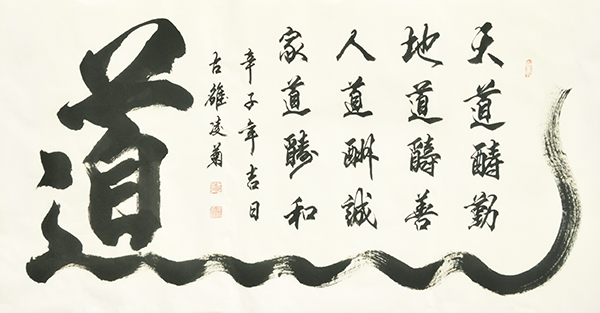 天道醻勤
地道醻善
人道酬誠
家道醻和
辛子年吉日
古凌菊
道